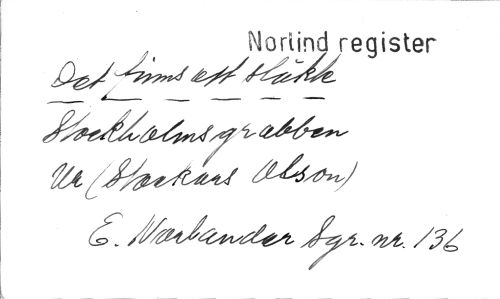 Norlind register
Det finns ett släkte
Stockholmsgrabben
Ur (Stockars Olson)
E. Norlander Sgr. nr. 136